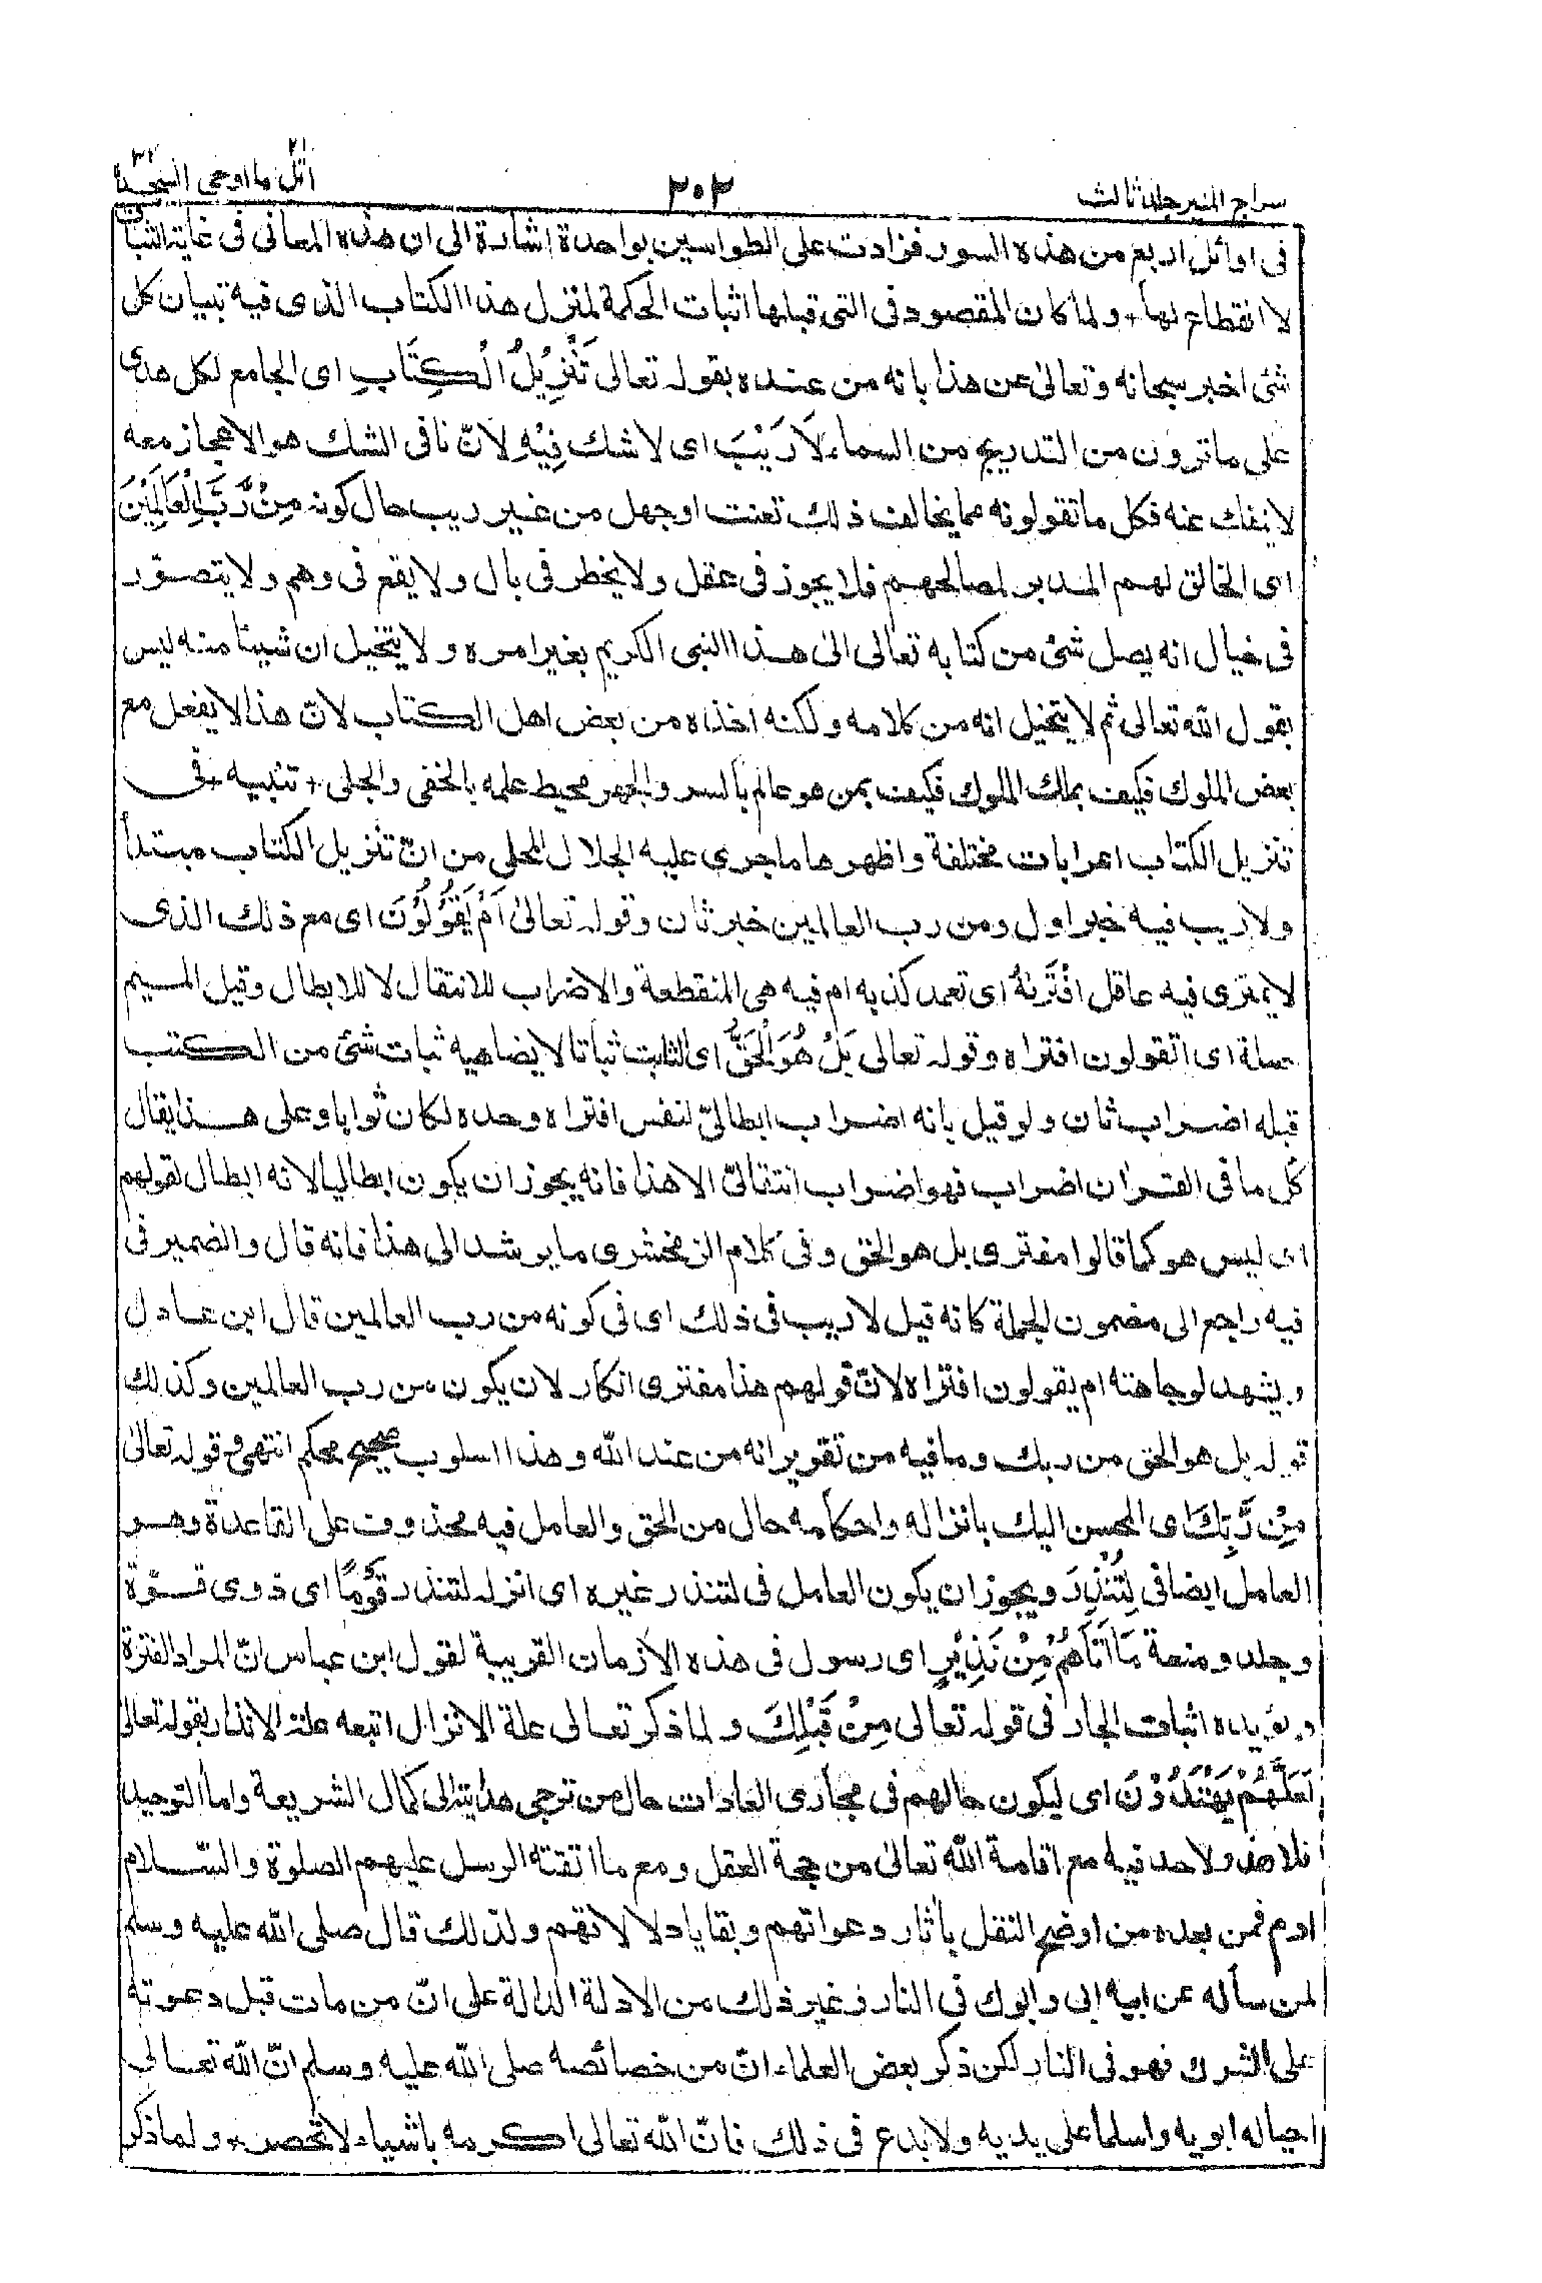 سراج المنير جلد ثالث
٢٠٣
٢١
اتل ما اوحى السجدة
٣٢
فى اوائل اربع من هذه السور فزادت على الطواسين بواحدة اشارة الى ان هذه المعانى فى غاية الثبات
لا انقطاع لها + ولما كان المقصود فى التى قبلها اثبات الحكمة لمنزل هذا الكتاب الذى فيه تبيان كل
شئ اخبر سبحانه وتعالى عن هذا بانه من عنده بقوله تعالى تَنْزِيْلُ الْكِتَابِ اى الجامع لكل هدى
على ما ترون من التدريج من السماء لَا رَيْبَ اى لا شك فِيْهِ لانّ نافى الشك هو الاعجاز معه
لا ينفك عنه فكل ما تقولونه مما يخالف ذلك تعنت او جهل من غير ريب حال كونه مِنْ رَّبِّ الْعَالَمِيْنَ
اى الخالق لهم المدبر لمصالحهم فلا يجوز فى عقل ولا يخطر فى بال ولا يقع فى وهم ولا يتصوّر
فى خيال انه يصل شئ من كتابه تعالى الى هذا النبى الكريم بغير امره ولا يتخيل ان شيئا منه ليس
بقول الله تعالى ثم لا يتخيل انه من كلامه ولكنه اخذه من بعض اهل الكتاب لانّ هذا لا يفعل مع
بعض الملوك فكيف بملك الملوك فكيف بمن هو عالم بالسر والجهر محيط علمه بالخفى والجلى + تنبيه + فى
تنزيل الكتاب اعرابات مختلفة واظهرها ما جرى عليه الجلال المحلى من انّ تنزيل الكتاب مبتدأ
ولا ريب فيه خبر اول ومن رب العالمين خبر ثان وقوله تعالى اَمْ يَقُوْلُوْنَ اى مع ذلك الذى
لا يمترى فيه عاقل افْتَرٰىهُ اى تعمد كذبه ام فيه هى المنقطعة والاضراب للانتقال لا للابطال وقيل الميم
صلة اى اتقولون افتراه وقوله تعالى بَلْ هُوَ الْحَقُّ اى الثابت ثباتا لا يضاهيه ثبات شئ من الكتب
قبله اضراب ثان ولو قيل بانه اضراب ابطالىّ لنفس افتراه وحده لكان ثوابا وعلى هذا يقال
كل ما فى القران اضراب فهو اضراب انتقالىّ الا هذا فانه يجوز ان يكون ابطاليا لانه ابطال لقولهم
اى ليس هو كما قالوا مفترى بل هو الحق وفى كلام الزمخشرى ما يرشد الى هذا فانه قال والضمير فى
فيه راجع الى مضمون الجملة كانه قيل لا ريب فى ذلك اى فى كونه من رب العالمين قال ابن عادل
ويشهد لوجاهته ام يقولون افتراه لانّ قولهم هذا مفترى انكار لان يكون من رب العالمين وكذلك
قوله بل هو الحق من ربك وما فيه من تقرير انه من عند الله وهذا اسلوب صحيح محكم انتهى وقوله تعالى
مِنْ رَّبِّكَ اى المحسن اليك بانزاله واحكامه حال من الحق والعامل فيه محذوف على القاعدة وهو
العامل ايضا فى لِتُنْذِرَ ويجوز ان يكون العامل فى لتنذر غيره اى انزله لتنذر قَوْمًا اى ذوى قوّة
وجلد ومنعة مَا اَتَاهُمْ مِنْ نَذِيْرٍ اى رسول فى هذه الازمان القريبة لقول ابن عباس انّ المراد الفترة
ويؤيده اثبات الجار فى قوله تعالى مِنْ قَبْلِكَ ولما ذكر تعالى علة الانزال اتبعه علة الانذار بقوله تعالى
لَعَلَّهُمْ يَهْتَدُوْنَ اى ليكون حالهم فى مجارى العادات حال من ترجى هدايته الى كمال الشريعة واما التوحيد
فلا عذر لاحد فيه مع اقامة الله تعالى من حجة العقل ومع ما اتقنته الرسل عليهم الصلوة والسّلام
ادم فمن بعده من اوضح النقل باثار دعواتهم وبقايا دلالاتهم ولذلك قال صلى الله عليه وسلم
لمن سأله عن ابيه ابى وابوك فى النار وغير ذلك من الادلة الدالة على انّ من مات قبل دعوته
على الشرك فهو فى النار لكن ذكر بعض العلماء انّ من خصائصه صلى الله عليه وسلم انّ الله تعالى
احيا له ابويه واسلما على يديه ولا بدع فى ذلك فانّ الله تعالى اكرمه باشياء لا تحصر + ولما ذكر